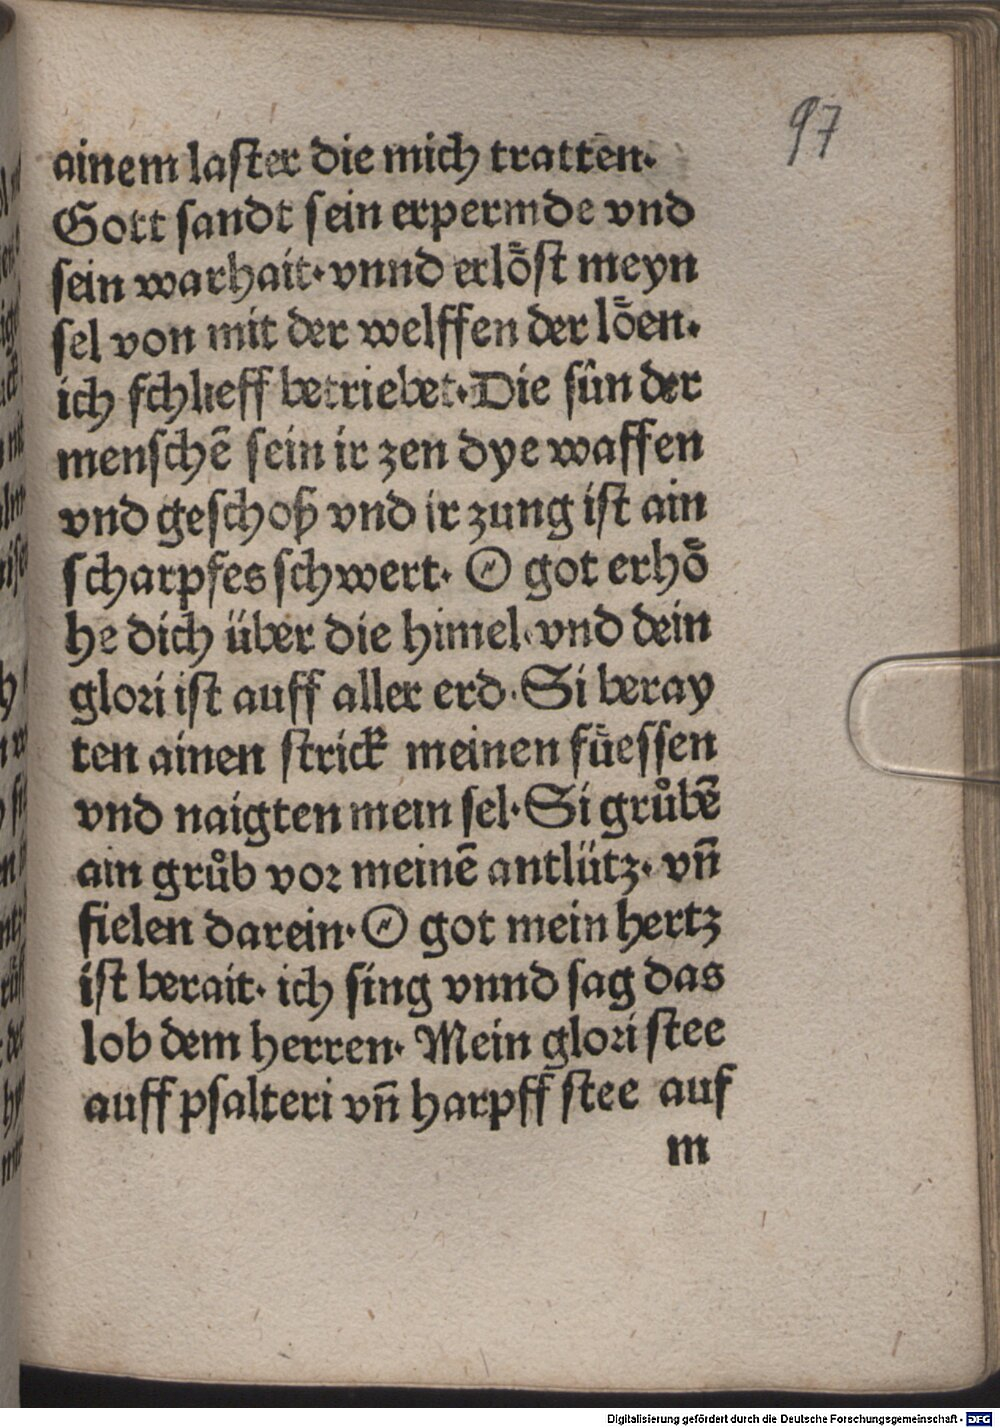 97
ainem laster die mich tratten.
Gott sandt sein erpermde vnd
sein warhait. vnnd erlöst meyn
sel von mit der welffen der löen.
ich schlieff betriebet. Die sün der
menschē sein ir zen dye waffen
vnd geschoß vnd ir zung ist ain
scharpfes schwert. O got erhö
he dich über die himel. vnd dein
glori ist auff aller erd. Si beray
ten ainen strick meinen füessen
vnd naigten mein sel. Si grůbē
ain grůb vor meinē antlütz. vñ
fielen darein. O got mein hertz
ist berait. ich sing vnnd sag das
lob dem herren. Mein glori stee
auff psalteri vñ harpff stee auf
m
Digitalisierung gefördert durch die Deutsche Forschungsgemeinschaft - DFG